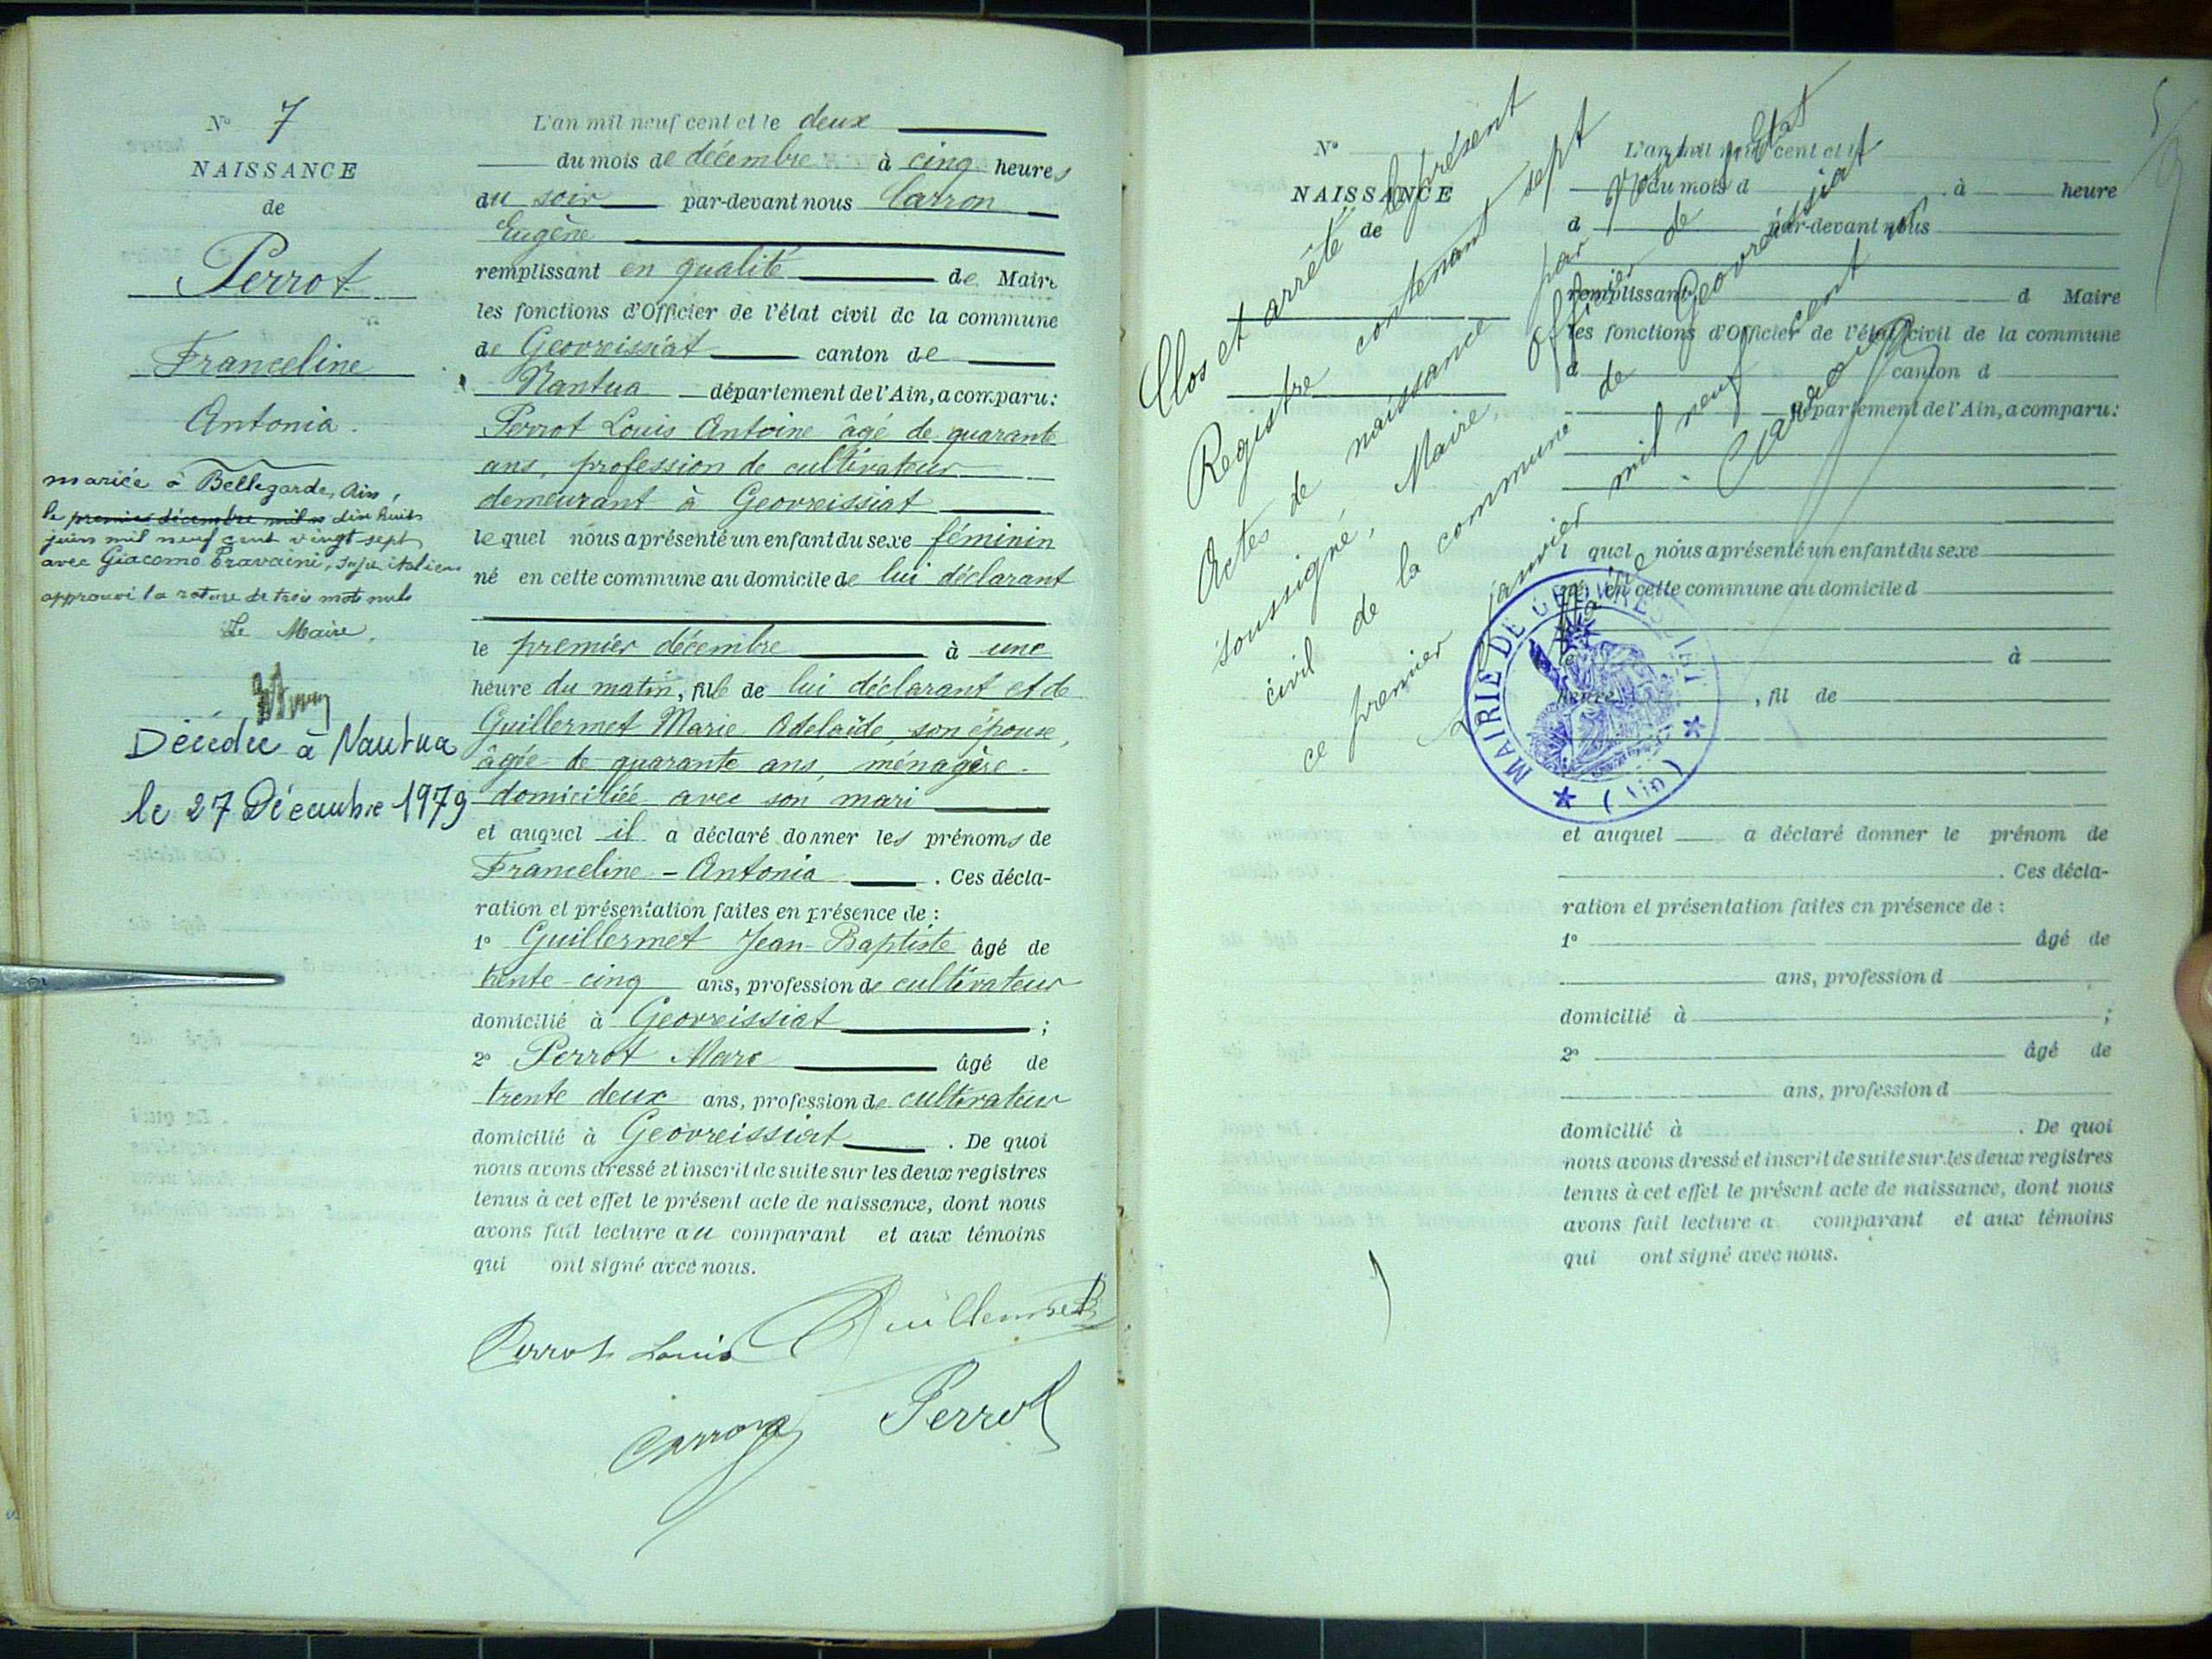 N° 7
NAISSANCE
de
Perrot
Franceline
Antonia.
mariée à Bellegarde, Ain,
le premier décembre mil dix huit
juin mil neuf cent vingt-sept
avec Giacomo Pravaini, sujet italien
approuvé la rature de trois mots nuls
Le Maire,
Décédée à Nantua
le 27 Décembre 1979
L'an mil neuf cent et le deux
du mois de décembre à cinq heures
du soir par-devant nous Carron
Eugène
remplissant en qualité de Maire
les fonctions d'Officier de l'état civil de la commune
de Geovreissiat canton de
Nantua département de l'Ain, a comparu:
Perrot Louis Antoine âgé de quarante
ans, profession de cultivateur
demeurant à Geovreissiat
lequel nous a présenté un enfant du sexe féminin
né en cette commune au domicile de lui déclarant
le premier décembre à une
heure du matin, fille de lui déclarant et de
Guillermet Marie Adelaïde, son épouse,
âgée de quarante ans, ménagère
domiciliée avec son mari
et auquel il a déclaré donner les prénoms de
Franceline - Antonia . Ces décla-
ration et présentation faites en présence de :
1° Guillermet Jean-Baptiste âgé de
trente-cinq ans, profession de cultivateur
domicilié à Geovreissiat ;
2° Perrot Marc âgé de
trente deux ans, profession de cultivateur
domicilié à Geovreissiat . De quoi
nous avons dressé et inscrit de suite sur les deux registres
tenus à cet effet le présent acte de naissance, dont nous
avons fait lecture au comparant et aux témoins
qui ont signé avec nous.
Perrot Louis Guillermet
Carron Perrot
N°
NAISSANCE
de
Clos et arrêté le présent
Registre contenant sept
Actes de naissance par Nous
soussigné, Maire, Officier de l'Etat
civil de la commune de Geovreissiat
ce premier janvier mil neuf cent un
Le Maire
Carron
L'an mil neuf cent et le
du mois d à heure
d par-devant nous
remplissant d Maire
les fonctions d'Officier de l'état civil de la commune
d canton d
département de l'Ain, a comparu:
l quel nous a présenté un enfant du sexe
né en cette commune au domicile d
le à
heure , fil de
MAIRIE DE GEOVREISSIAT
(Ain)
et auquel a déclaré donner le prénom de
. Ces décla-
ration et présentation faites en présence de :
1° âgé de
ans, profession d
domicilié à ;
2° âgé de
ans, profession d
domicilié à . De quoi
nous avons dressé et inscrit de suite sur les deux registres
tenus à cet effet le présent acte de naissance, dont nous
avons fait lecture a comparant et aux témoins
qui ont signé avec nous.